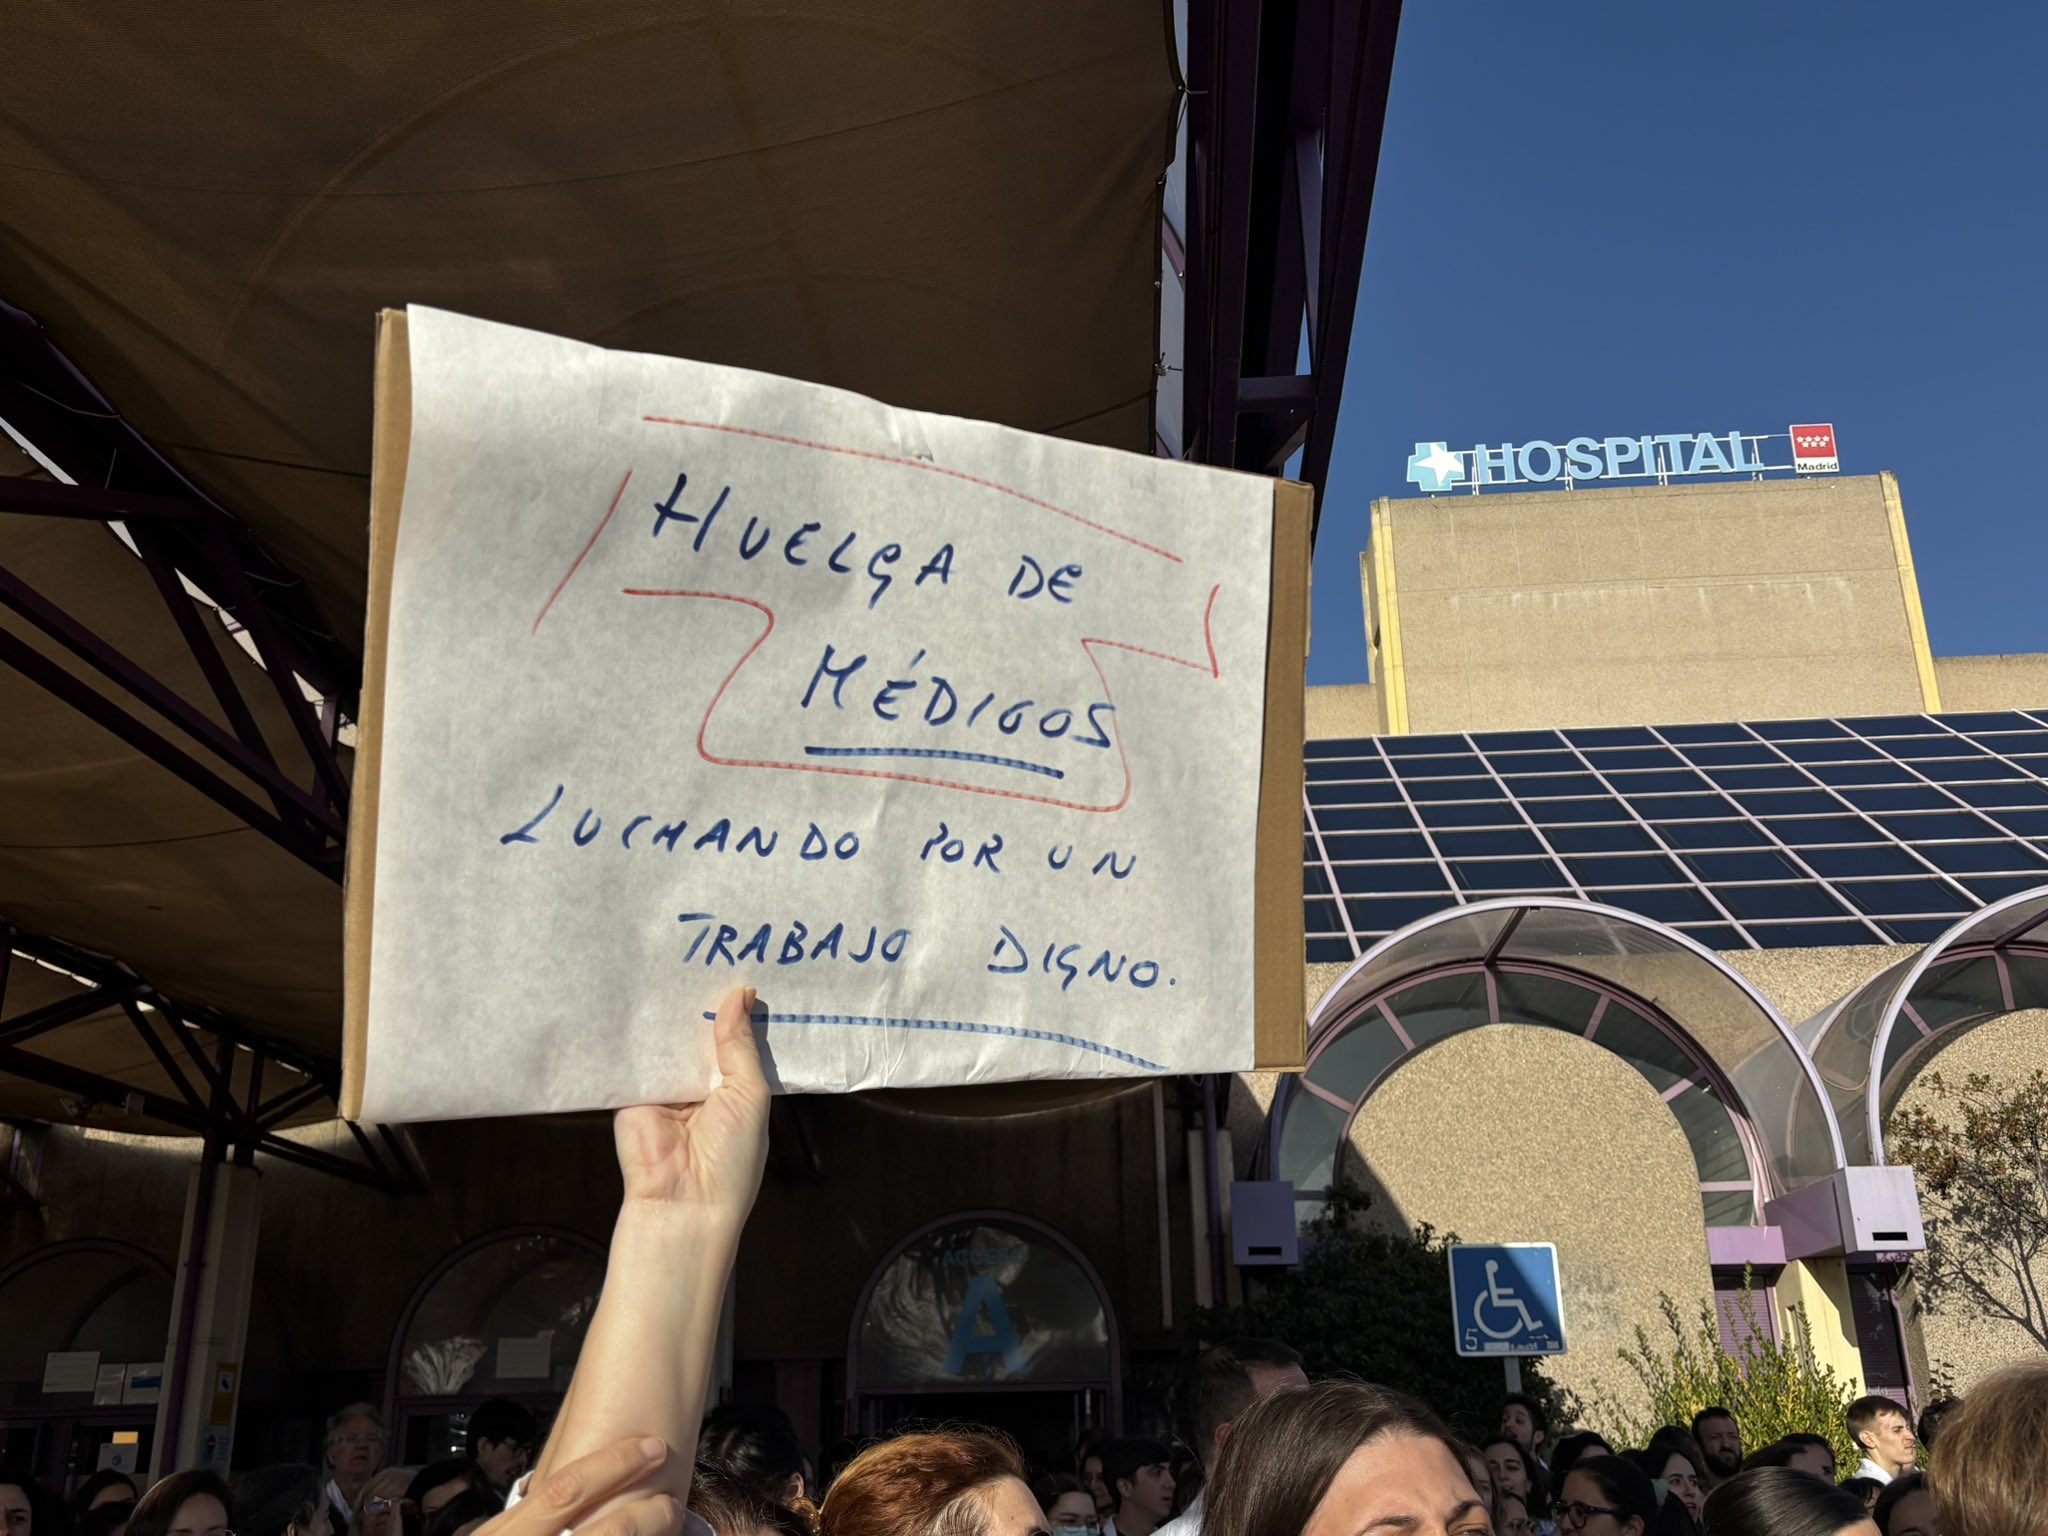 HUELGA DE
MÉDICOS
LUCHANDO POR UN
TRABAJO DIGNO.
HOSPITAL
Madrid
ACCESO
A
5